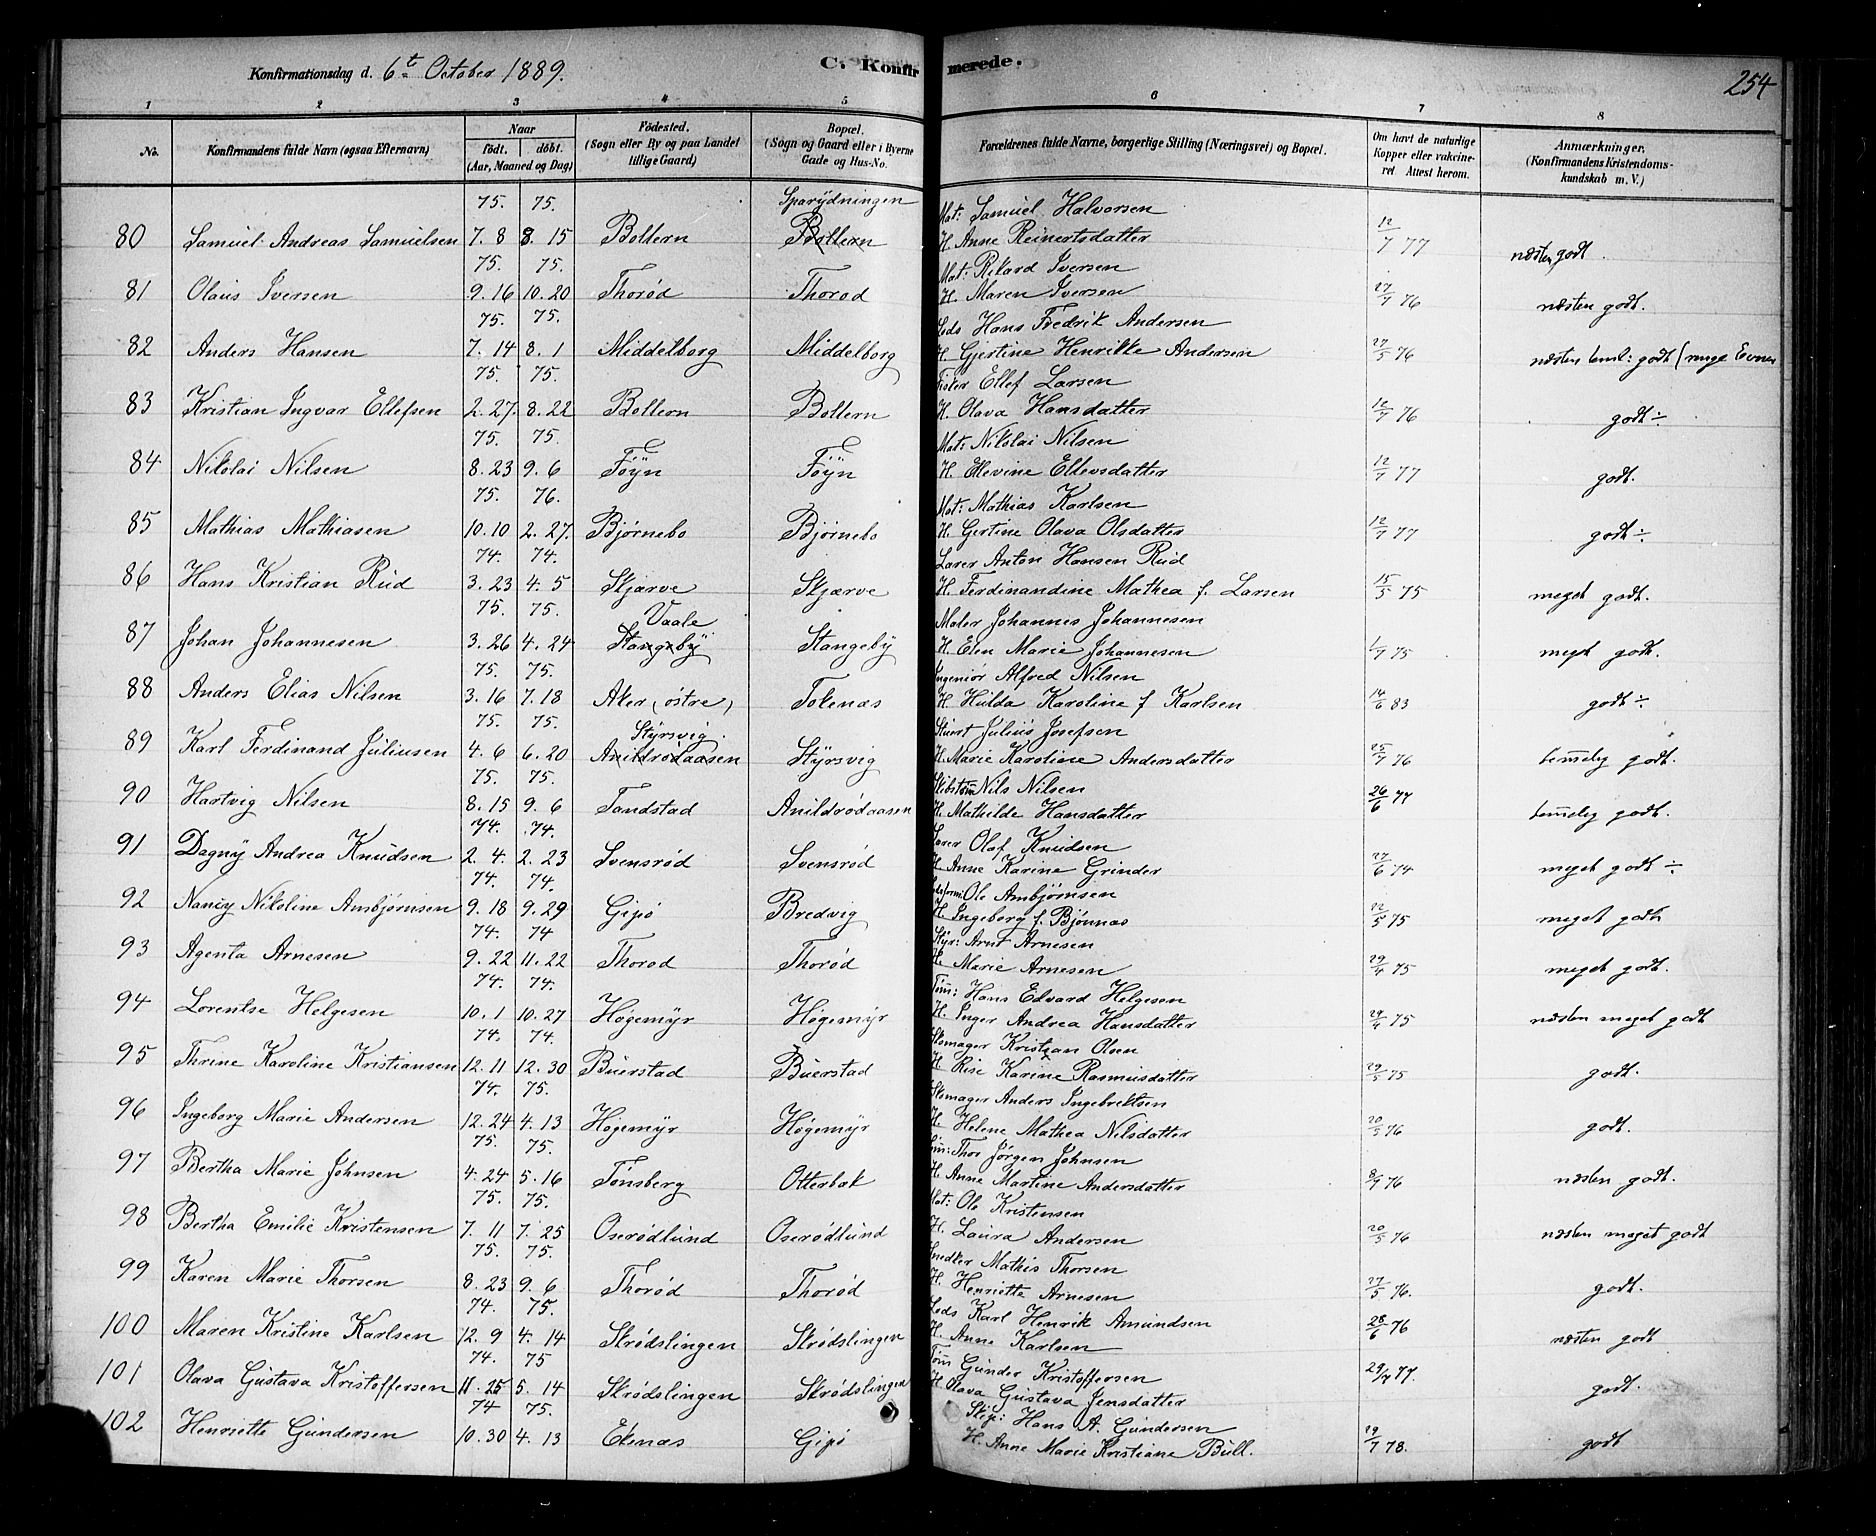 Konfirmationsdag d. 6t October 1889.
C. Konfirmerede.
254
1 2 3 4 5 6 7 8
No.
Konfirmandens fulde Navn (ogsaa Efternavn)
Naar
født. døbt.
(Aar, Maaned og Dag)
Fødested.
(Sogn eller By og paa Landet
tillige Gaard)
Bopæl.
(Sogn og Gaard eller i Byerne
Gade og Hus-No.
Forældrenes fulde Navne, borgerlige Stilling (Næringsvei) og Bopæl.
Om havt de naturlige
Kopper eller vakcine-
ret. Attest herom.
Anmærkninger.
(Konfirmandens Kristendoms-
kundskab m. V.)
75. 75. Sparydningen Mat: Samuel Halvorsen
80 Samuel Andreas Samuelsen 7. 8 8. 15 Bollern Bollern H. Anne Reinertsdatter 12/7 77 næsten godt.
75. 75. Mat: Rikard Iversen
81 Olaus Iversen 9. 16 10. 20 Thorød Thorød H. Maren Iversen 27/7 76 næsten godt.
75. 75. Lods Hans Fredrik Andersen
82 Anders Hansen 7. 14 8. 1 Middelborg Middelborg H. Gjertine Henrikke Andersen 27/5 76 næsten teml: godt (ringe Evner
75. 75. Fisker Ellef Larsen
83 Kristian Ingvar Ellefsen 2. 27. 8. 22 Bollern Bollern H. Olava Hansdatter 12/7 76 godt ÷
75. 75. Mat: Nikolai Nilsen
84 Nikolai Nilsen 8. 23 9. 6 Føyn Føyn H. Ellevine Ellevsdatter 12/7 77 godt.
75. 76. Mat: Mathias Karlsen
85 Mathias Mathiasen 10. 10 2. 27. Bjørnebo Bjørnebo H. Gertine Olava Olsdatter 12/7 77 godt ÷
74. 74. Lærer Anton Hansen Rud
86 Hans Kristian Rud 3. 23 4. 5 Skjærve Skjærve H. Ferdinandine Mathea f. Larsen 15/5 75 meget godt.
75. 75. Vaale Maler Johannes Johannesen
87 Johan Johannesen 3. 26 4. 24 Stangeby Stangeby H. Elen Marie Johannesen 1/7 75 meget godt.
75. 75. Ingeniør Alfred Nilsen
88 Anders Elias Nilsen 3. 16 7. 18 Aker (østre) Tokenæs H. Hulda Karoline f Karlsen 14/6 83 godt ÷
75. 75. Styrsvig. Stuert Julius Josefsen
89 Karl Ferdinand Juliusen 4. 6 6. 20 Anildrødaasen Styrsvig H. Marie Karoline Andersdatter 25/7 76 temmelig godt.
75. 75. Skibstøm Nils Nilsen
90 Hartvig Nilsen 8. 15 9. 6 Tandstad Anildrødaasen H. Mathilde Hansdatter 26/6 77 temmelig godt.
74. 74. Lærer Olaf Knudsen
91 Dagny Andrea Knudsen 2. 4. 2. 23 Svensrød Svensrød H. Anne Karine Grinder 27/6 74 meget godt ÷
74. 74. Ole Ambjørnsen
92 Nancy Nikoline Ambjørnsen 9. 18 9. 29 Gipø Bredvig H. Ingeborg f. Bjønnæs 22/5 75 meget godt
74. 74 Styr: Arnt Arnesen
93 Agenta Arnesen 9. 22 11. 22 Thorød Thorød H. Marie Arnesen 29/4 75 meget godt.
74. 74. Tøm: Hans Edvard Helgesen
94 Lorentse Helgesen 10. 1 10. 27 Høgemyr Høgemyr H. Inger Andrea Hansdatter 29/4 75 næsten meget godt
74. 74. Skomager Kristian Olsen
95 Thrine Karoline Kristiansen 12. 11 12. 30 Buerstad Buerstad H. Rise Karine Rasmusdatter 29/5 75 godt.
74. 75. Skomager Anders Ingebretsen
96 Ingeborg Marie Andersen 12. 24 4. 13 Høgemyr Høgemyr H. Helene Mathea Nilsdatter 20/5 76 godt.
75. 75. Thor Jørgen Johnsen
97 Bertha Marie Johnsen 4. 24 5. 16 Tønsberg Otterbæk H. Anne Martine Andersdatter 8/9 76 næsten godt.
75. 75. Mat: Ole Kristensen
98 Bertha Emilie Kristensen 7. 11 7. 25 Oserødlund Oserødlund H. Laura Andersen 20/5 76 næsten meget godt
75. 75. Snedker Mathis Thorsen
99 Karen Marie Thorsen 8. 23 9. 6 Thorød Thorød H. Henriette Arnesen 27/5 76. godt.
74. 75. Lods Karl Henrik Amundsen
100 Maren Kristine Karlsen 12. 9 4. 14 Skrødslingen Skrødslingen H. Anne Karlsen 28/6 76 næsten godt
74. 75 Tøm Gunder Kristoffersen
101 Olava Gustava Kristoffersen 11. 25 5. 14 Skrødslingen Skrødslingen H. Olava Gustava Jensdatter 29/7 77. godt.
74 75. Skip: Hans A. Gundersen
102 Henriette Gundersen 10. 30 4. 13 Ekenæs Gipø H. Anne Marie Kristiane Bull. 29/7 78. godt